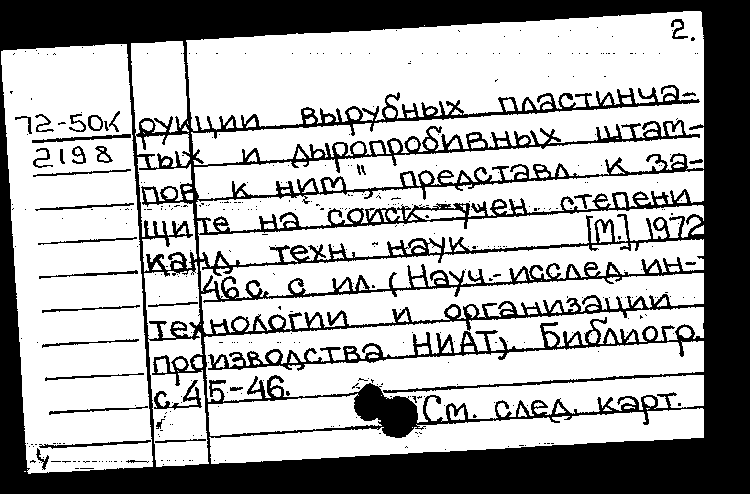 2.
72-50к рукции вырубных пластинча-
2198 тых и дыропробивных штам-
пов к ним", представл. к за-
щите на соиск. учен. степени
канд. техн. наук. [М.], 1972
46 с. с ил. (Науч.-исслед. ин-т
технологии и организации
производства НИАТ). Библиогр.:
с. 45-46.
См. след. карт.